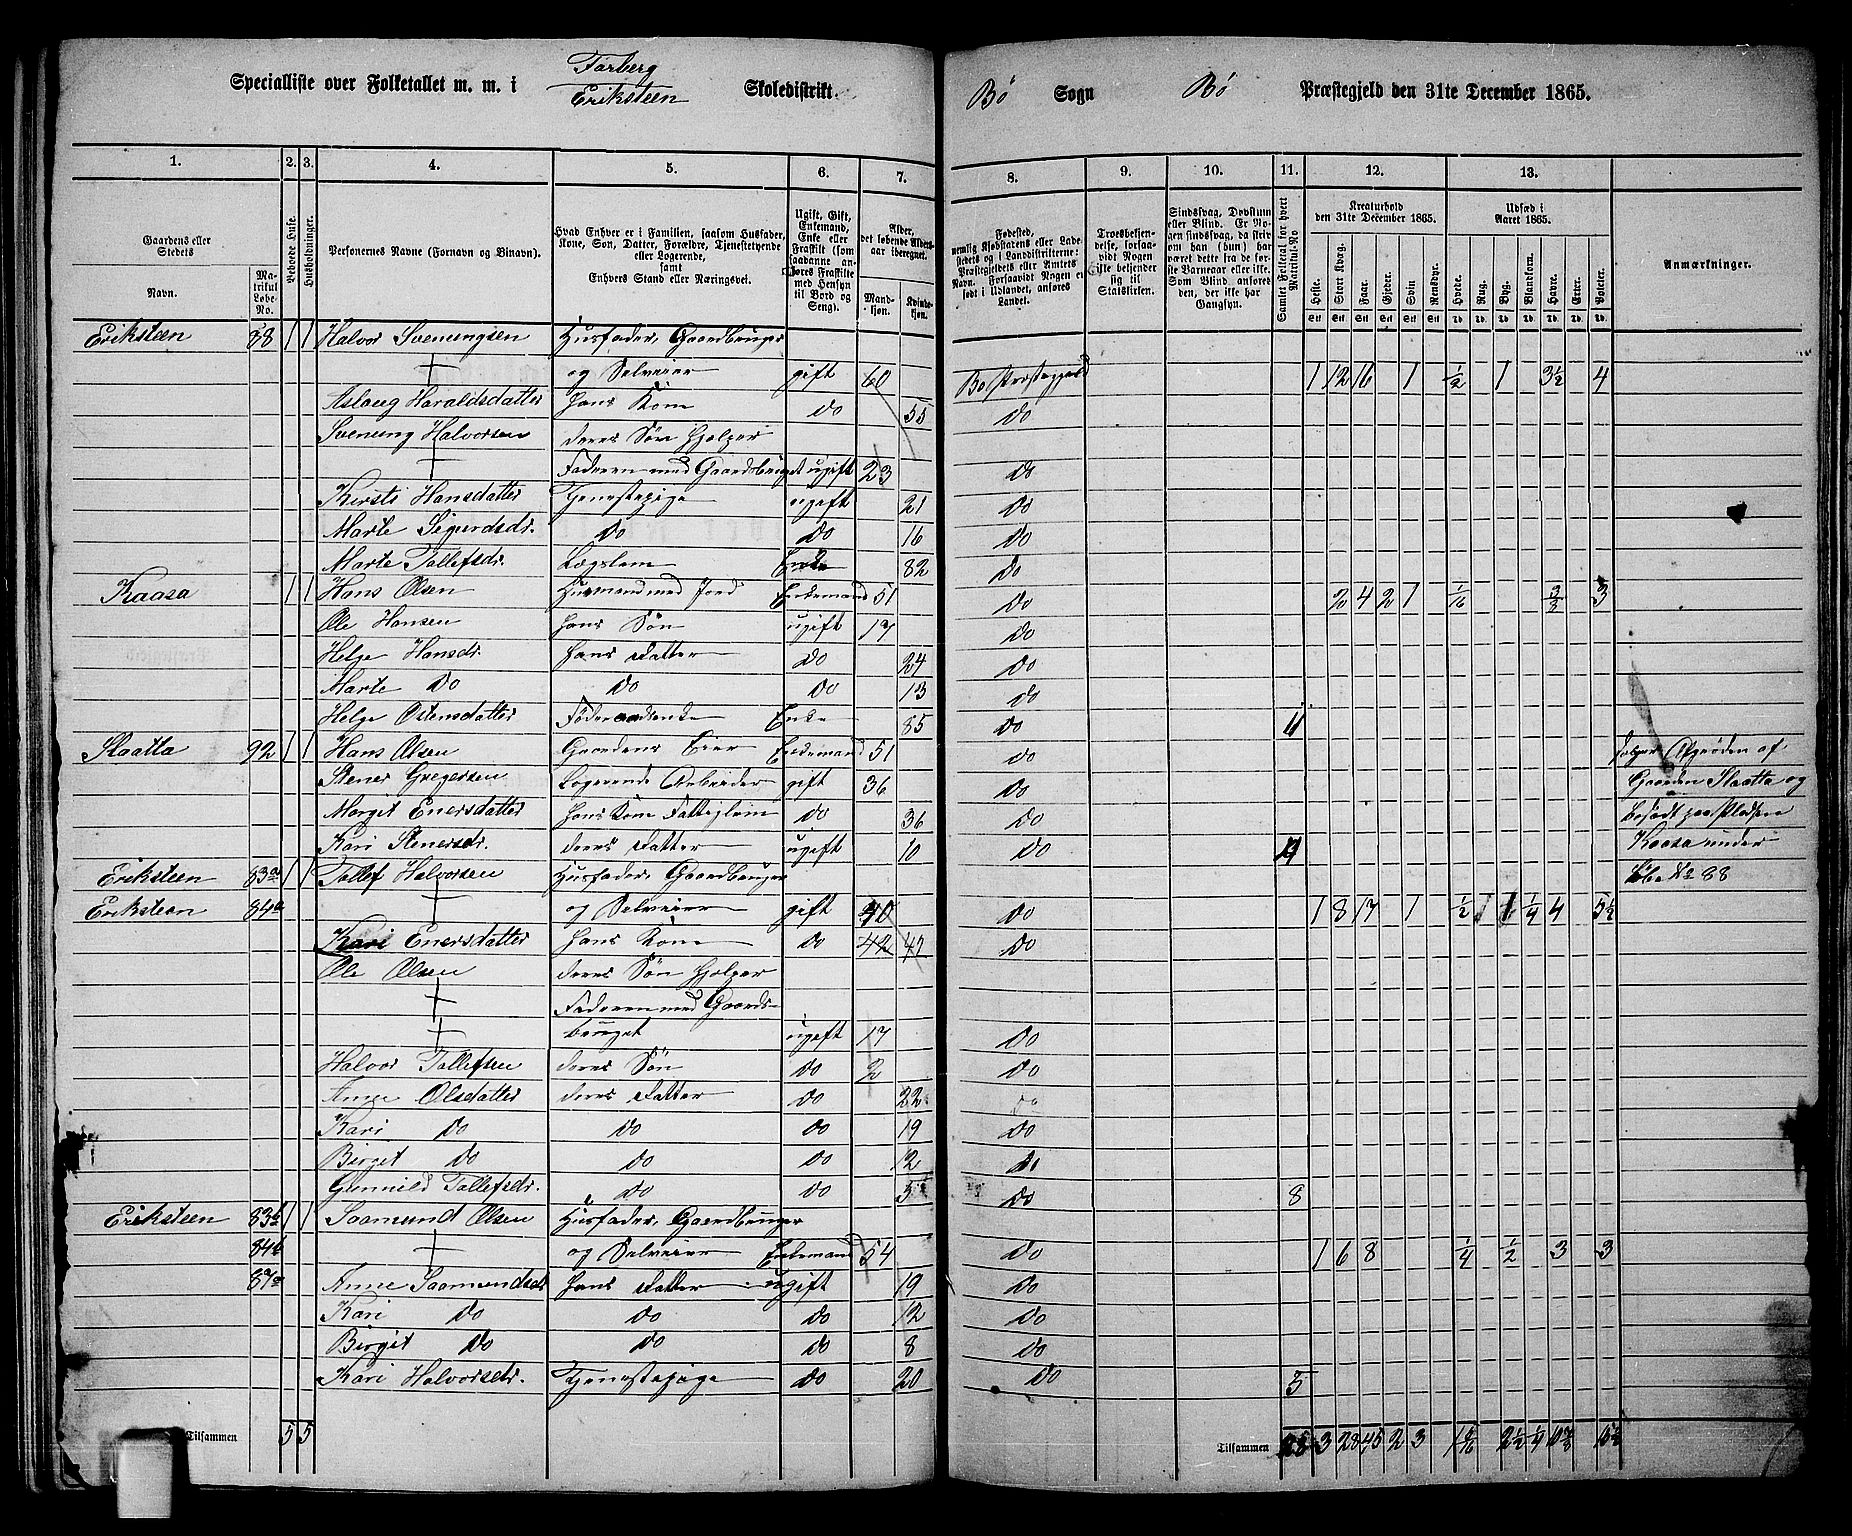 Specialliste over Folketallet m. m. i Førberg Eriksteen Skoledistrikt. Bø Sogn Bø Præstegjeld den 31te December 1865.
1. 2. 3. 4. 5. 6. 7. 8. 9. 10. 11. 12. 13.
Gaardens eller Stedets Navn. Matrikul Løbe-No. Beboede Huse. Husholdninger. Personernes Navne (Fornavn og Binavn). Hvad Enhver er i Familien, saasom Husfader, Kone, Søn, Datter, Forældre, Tjenestetyende eller Logerende, samt Enhvers Stand eller Næringsvei. Ugift, Gift, Enkemand, Enke eller Fraskilt (som saadanne anføres Fraskilte med Hensyn til Bord og Seng). Alder, det løbende Aldersaar iberegnet. Mandkjøn. Kvindekjøn.
Fødested, Troesbekjendelse, forsaavidt Nogen ikke bekjender sig til Statskirken. Samlet Folketal for hvert Matrikul-No Kreaturhold den 31te December 1865. Udsæd i Aaret 1865. Anmærkninger.
Heste. Stort Kvæg. Faar. Gjeder. Svin. Rensdyr. Hvede. Rug. Byg. Blandkorn. Havre. Erter. Poteter.
Eriksteen 88 1 1 Halvor Svenungsen Husfader, Gaardbruger
og Selveier gift 60 Bø Præstegjeld 1 12 16 1 1/2 1 3 1/2 4
Aslaug Haraldsdatter Hans Kone do 55 do
Svenung Halvorsen deres Søn Hjelper
Faderen med Gaardsbruget ugift 23 do
Kirsti Hansdatter Tjenestepige ugift 21 do
Marte Sigurdsdr. do do 16 do
Marte Tollefsdr. Lægslem Enke 82 do
Kaasa 1 1 Hans Olsen Husmand med Jord Enkemand 51 do 2 4 2 1 1/16 3/2 3
Ole Hansen Hans Søn ugift 17 do
Helge Hansdr. Hans Datter do 24 do
Marte do do do 13 do
Helge Ostensdatter Føderaadsenke Enke 85 do 11
Slaatta 92 1 1 Hans Olsen Gaardens Eier Enkemand 51 do Afgrøden af
Stener Gregersen Logerende Arbeider gift 36 do Gaarden Slaatta og
Margit Enersdatter Hans Kone Fattiglem do 36 do Pladsen
Kari Stenersdr. deres Datter ugift 10 do 4 Kaasa under
Eriksteen 83a 1 1 Tollef Halvorsen Husfader, Gaardbruger Løbe No 88
Eriksteen 84a og Selveier gift 40 do 1 8 17 1 1/2 1 1 1/4 4 5 1/2
Kari Enersdatter Hans Kone do 42 47 do
Ole Olsen deres Søn Hjelper
Faderen med Gaards-
bruget ugift 17 do
Halvor Tollefsen deres Søn do 2 do
Anne Olsdatter deres Datter do 22 do
Kari do do do 19 do
Birgit do do do 12 do
Gunnild Tollefsdr. do do 5 do 8
Eriksteen 83b 1 1 Saamund Olsen Husfader, Gaardbruger
84b og Selveier Enkemand 54 do 1 6 8 1/4 1/2 3 3
87a Anne Saamundsdr Hans Datter ugift 19 do
Kari do do do 12 do
Birgit do do do 8 do
Kari Halvorsdr. Tjenestepige do 20 do 5
Tilsammen 5 5 Tilsammen 28 3 28 45 2 3